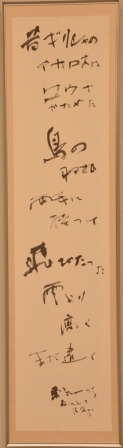 昔ギリシャの
イカロスは
ロウで
かためた
鳥の
羽根
両手に
持って
飛びたった
雲より
高く
まだ遠く